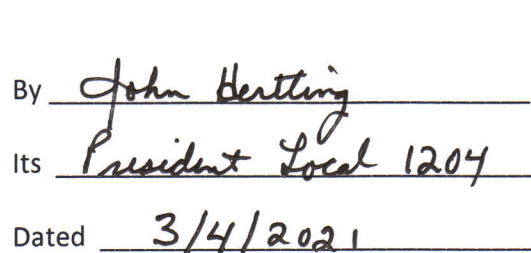 By John Hertting
Its President Local 1204
Dated 3/4/2021